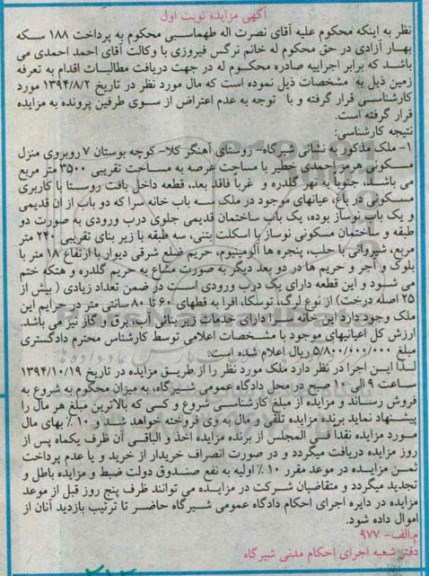 آگهی مزایده نوبت اول
نظر به اینکه محکوم علیه آقای نصرت اله طهماسبی محکوم به پرداخت ۱۸۸ سکه
بهار آزادی در حق محکوم له خانم نرگس فیروزی با وکالت آقای احمد احمدی می
باشد که برابر اجراییه صادره محکوم له در جهت دریافت مطالبات اقدام به تعرفه
زمین ذیل به مشخصات ذیل نموده است که مال مورد نظر در تاریخ ۱۳۹۴/۸/۲ مورد
کارشناسی قرار گرفته و با توجه به عدم اعتراض از سوی طرفین پرونده به مزایده
قرار گرفته است.
نتیجه کارشناسی:
۱- ملک مذکور به نشانی شیرگاه- روستای آهنگر کلا- کوچه بوستان ۷ روبروی منزل
مسکونی هرمز احمدی خطیر با مساحت عرصه به مساحت تقریبی ۳۵۰۰ متر مربع
می باشد. جنوبا به نهر گلدره و غربا فاقد بعد، قطعه داخل بافت روستا با کاربری
مسکونی در باغ، عیانهای موجود در ملک سه باب خانه سرا که دو باب از ان قدیمی
و یک باب نوساز بوده، یک باب ساختمان قدیمی جلوی درب ورودی به صورت دو
طبقه و ساختمان مسکونی نوساز با اسکلت بتنی، سه طبقه با زیر بنای تقریبی ۲۴۰ متر
مربع، شیروانی با حلب، پنجره ها آلومینیوم، حریم ضلع شرقی دیوار با ارتفاع ۱۸ متر با
بلوک و آجر و حریم ها در دو بعد دیگر به صورت مشاع به حریم گلدره و هتکه ختم
می شود و این قطعه دارای یک درب ورودی است در ضمن تعداد زیادی ( بیش از
۲۵ اصله درخت) از نوع لرگ، توسکا، افرا به قطرهای ۶۰ تا ۸۰ سانتی متر در حرایم این
ملک وجود دارد این خانه سرا دارای خدمات زیر بنائی آب، برق و گاز نیز می باشد.
ارزش کل اعیانیهای موجود با مشخصات اعلامی توسط کارشناس محترم دادگستری
مبلغ ۵/۸۰۰/۰۰۰/۰۰۰ ریال اعلام شده است.
لذا این اجرا در نظر دارد ملک مورد نظر را از طریق مزایده در تاریخ ۱۳۹۴/۱۰/۱۹
ساعت ۹ الی ۱۰ صبح در محل دادگاه عمومی شیرگاه، به میزان محکوم به شروع به
فروش رساند و مزایده از مبلغ کارشناسی شروع و کسی که بالاترین مبلغ هر مال را
پیشنهاد نماید برنده مزایده تلقی و مال به وی فروخته خواهد شد و ۱۰ ٪ بهای مال
مورد مزایده نقدا فی المجلس از برنده مزایده اخذ و الباقی آن ظرف یکماه پس از
روز مزایده دریافت میگردد و در صورت انصراف خریدار از خرید و یا عدم پرداخت
ثمن مزایده در موعد مقرر ۱۰ ٪ اولیه به نفع صندوق دولت ضبط و مزایده باطل و
تجدید میگردد و متقاضیان شرکت در مزایده می توانند ظرف پنج روز قبل از موعد
مزایده در دایره اجرای احکام دادگاه عمومی شیرگاه حاضر تا ترتیب بازدید آنان از
اموال داده شود.
م.الف- ۹۷۷
دفتر شعبه اجرای احکام مدنی شیرگاه